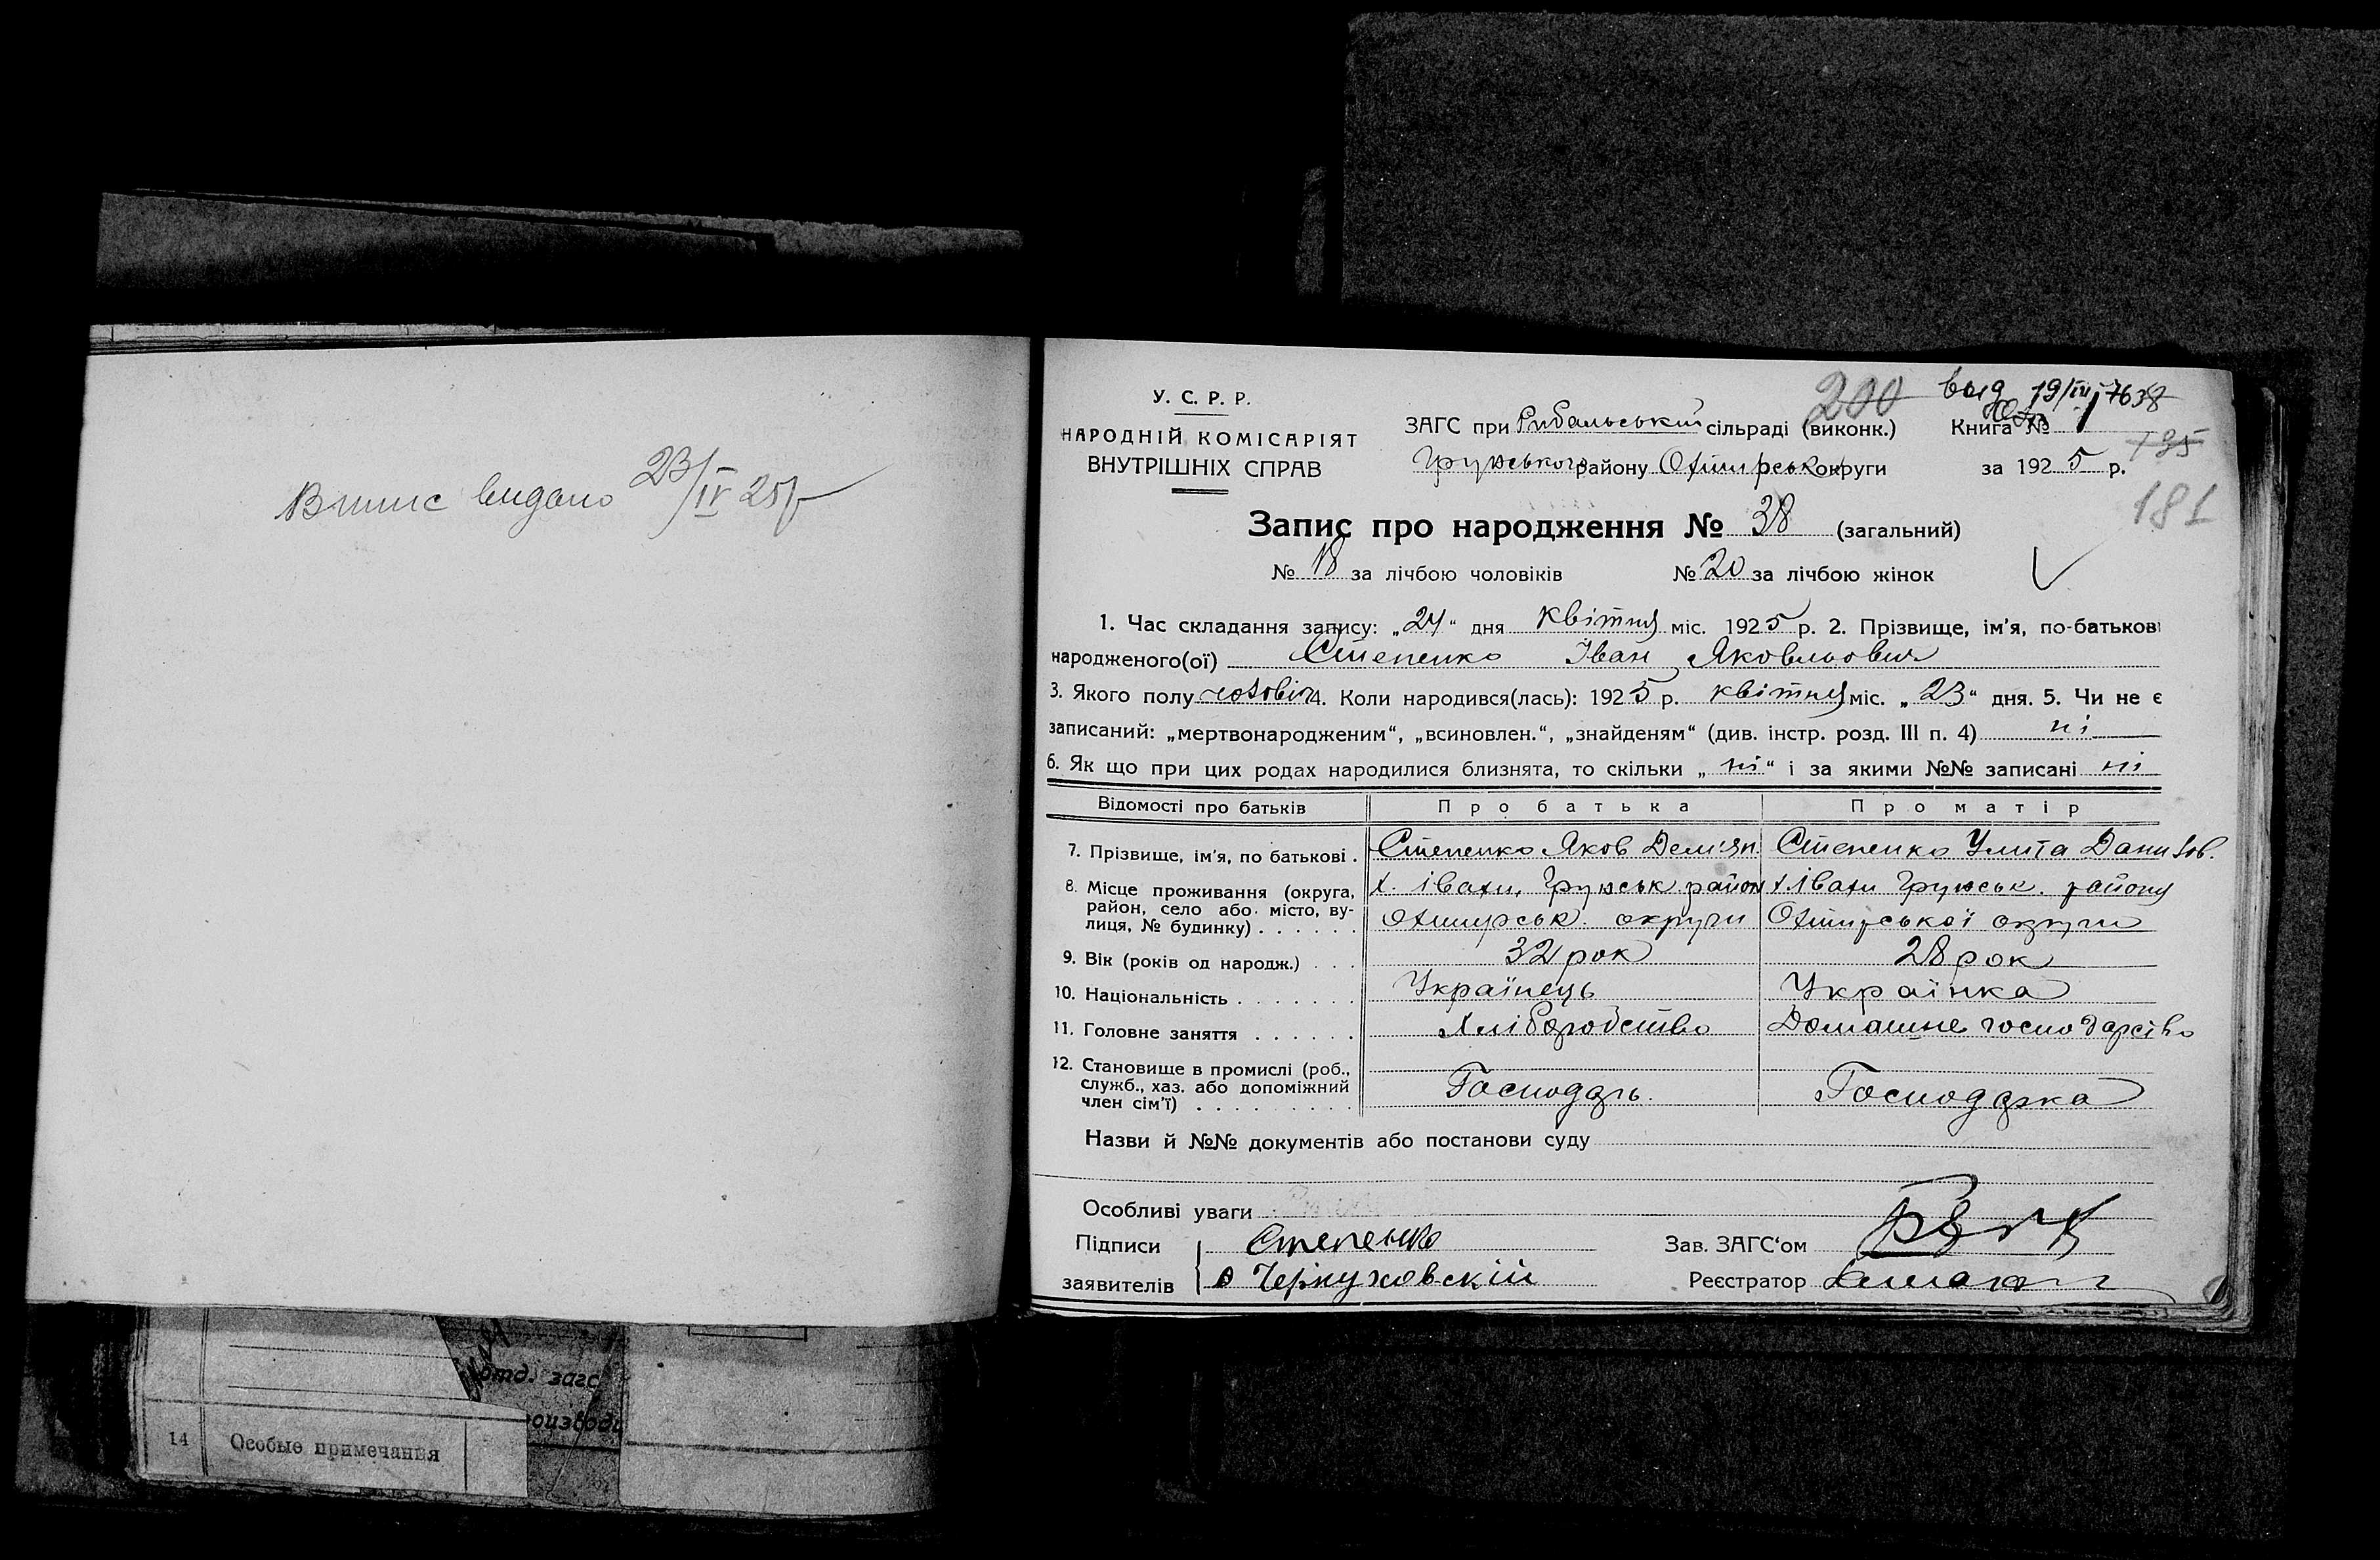 Випис видано 23/IV 25р
У. С. Р. Р.
НАРОДНІЙ КОМІСАРІЯТ
ВНУТРІШНІХ СПРАВ
200 выд 19/IV 7638
ЗАГС при Рибальській сільраді (виконк.) Книга № 1
Грунського району Охтирськ округи за 1925 р. 195
181
Запис про народження № 38 (загальний)
№ 18 за лічбою чоловіків № 20 за лічбою жінок
1. Час складання запису: „24“ дня квітня міс. 1925 р. 2. Прізвище, ім'я, по-батькові
народженого(ої) Степенко Іван Яковльович
3. Якого полу чоловіч 4. Коли народився(лась): 1925 р. квітня міс. „23“ дня. 5. Чи не є
записаний: „мертвонародженим“, „всиновлен.“, „знайденям“ (див. інстр. розд. III п. 4) ні
6. Як що при цих родах народилися близнята, то скільки „ні“ і за якими №№ записані ні
Відомості про батьків Про батька Про матір
7. Прізвище, ім'я, по батькові . Степенко Яков Дем'ян Степенко Улита Данилов.
8. Місце проживання (округа, х. Івахи, Грунськ район х. Івахи Грунськ. району
район, село або місто, ву-
лиця, № будинку) . . . . . . Охтирськ. округи Охтирської округи
9. Вік (років од народж.) . . . 32 рок 28 рок
10. Національність . . . . . . . Українець Українка
11. Головне заняття . . . . . . Хліборобство Домашнє господарство
12. Становище в промислі (роб.,
служб., хаз. або допоміжний Господарь. Господарка
член сім'ї) . . . . . . . . .
Назви й №№ документів або постанови суду
Особливі уваги
Підписи Степенко Зав. ЗАГС'ом
заявителів Чернуховскій Реєстратор
отд. загс
14 Особые примечания